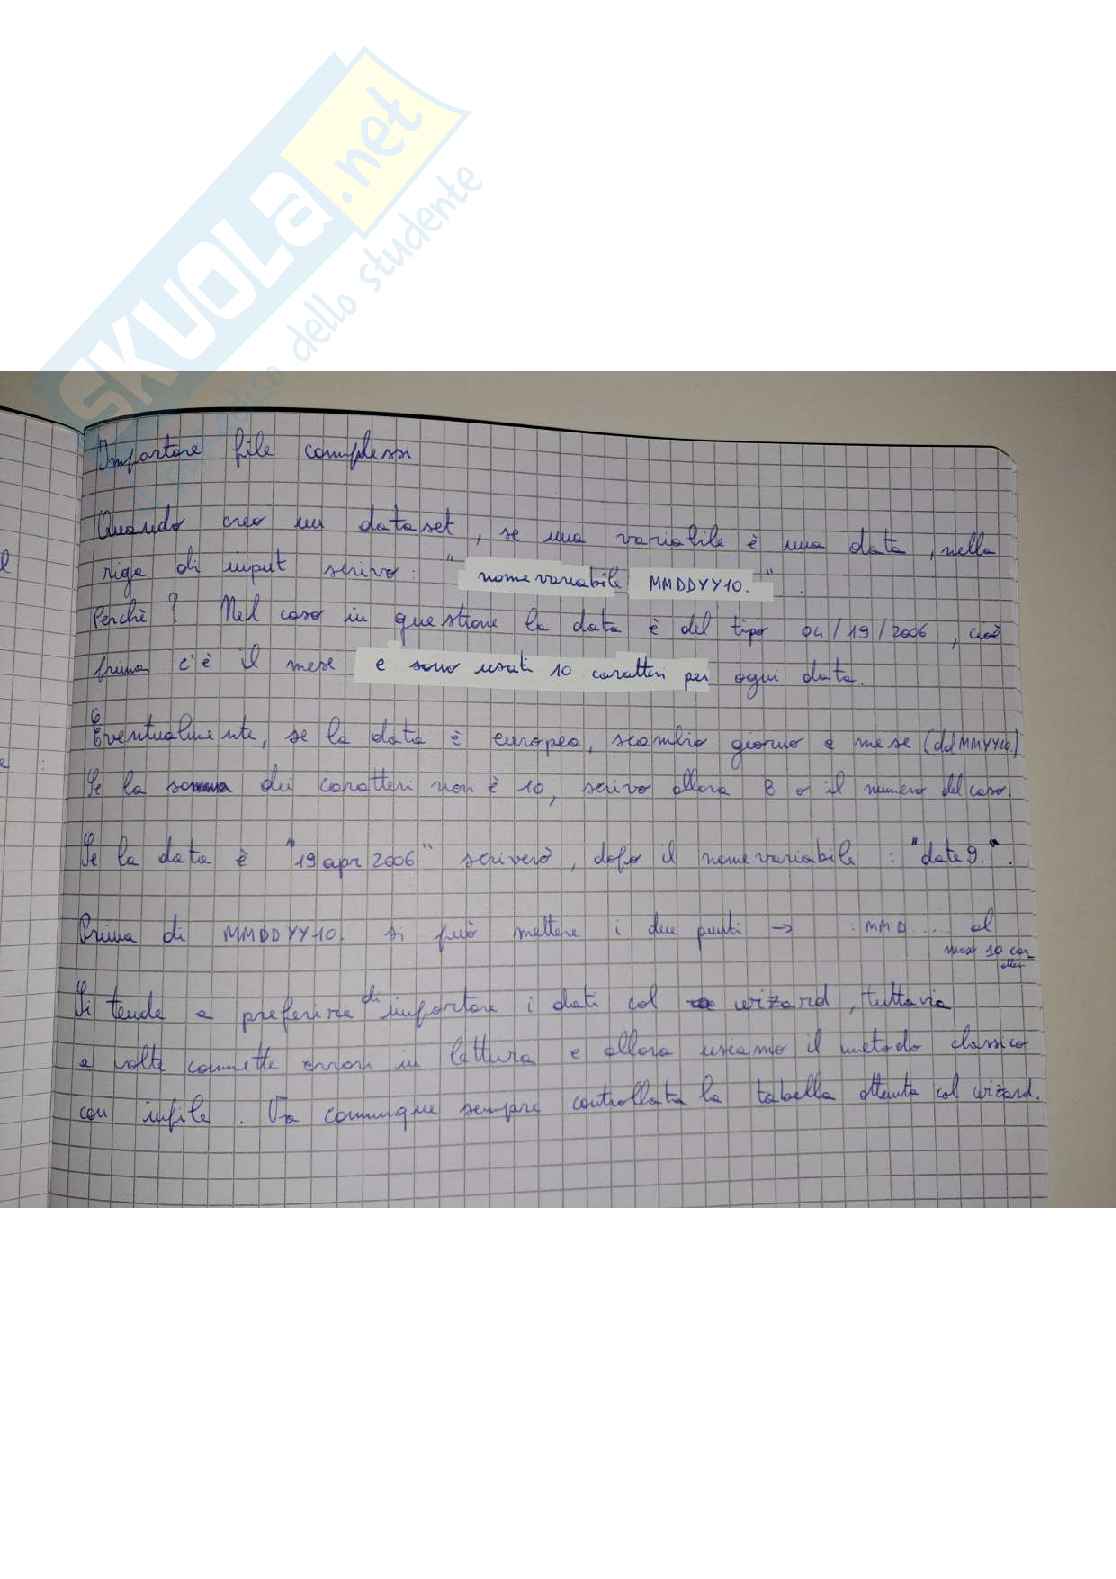 SKUOLA.net
dello studente
Importare file complessi
Quando creo un dataset, se una variabile è una data, nella
riga di input scrivo: "nomevariabile MMDDYY10."
Perchè? Nel caso in questione la data è del tipo 04/19/2006, cioè
prima c'è il mese e sono usati 10 caratteri per ogni data.
Eventualmente, se la data è europea, scambio giorno e mese (ddMMYY10.)
Se la somma dei caratteri non è 10, scrivo allora 8 o il numero del caso.
Se la data è "19apr2006" scriverò, dopo il nomevariabile: "date9.".
Prima di MMDDYY10. si può mettere i due punti → :MMD... al
max 10 car
atteri
Si tende a preferire di importare i dati col wizard, tuttavia
a volte commette errori in lettura e allora usiamo il metodo classico
con infile. Va comunque sempre controllata la tabella ottenuta col wizard.